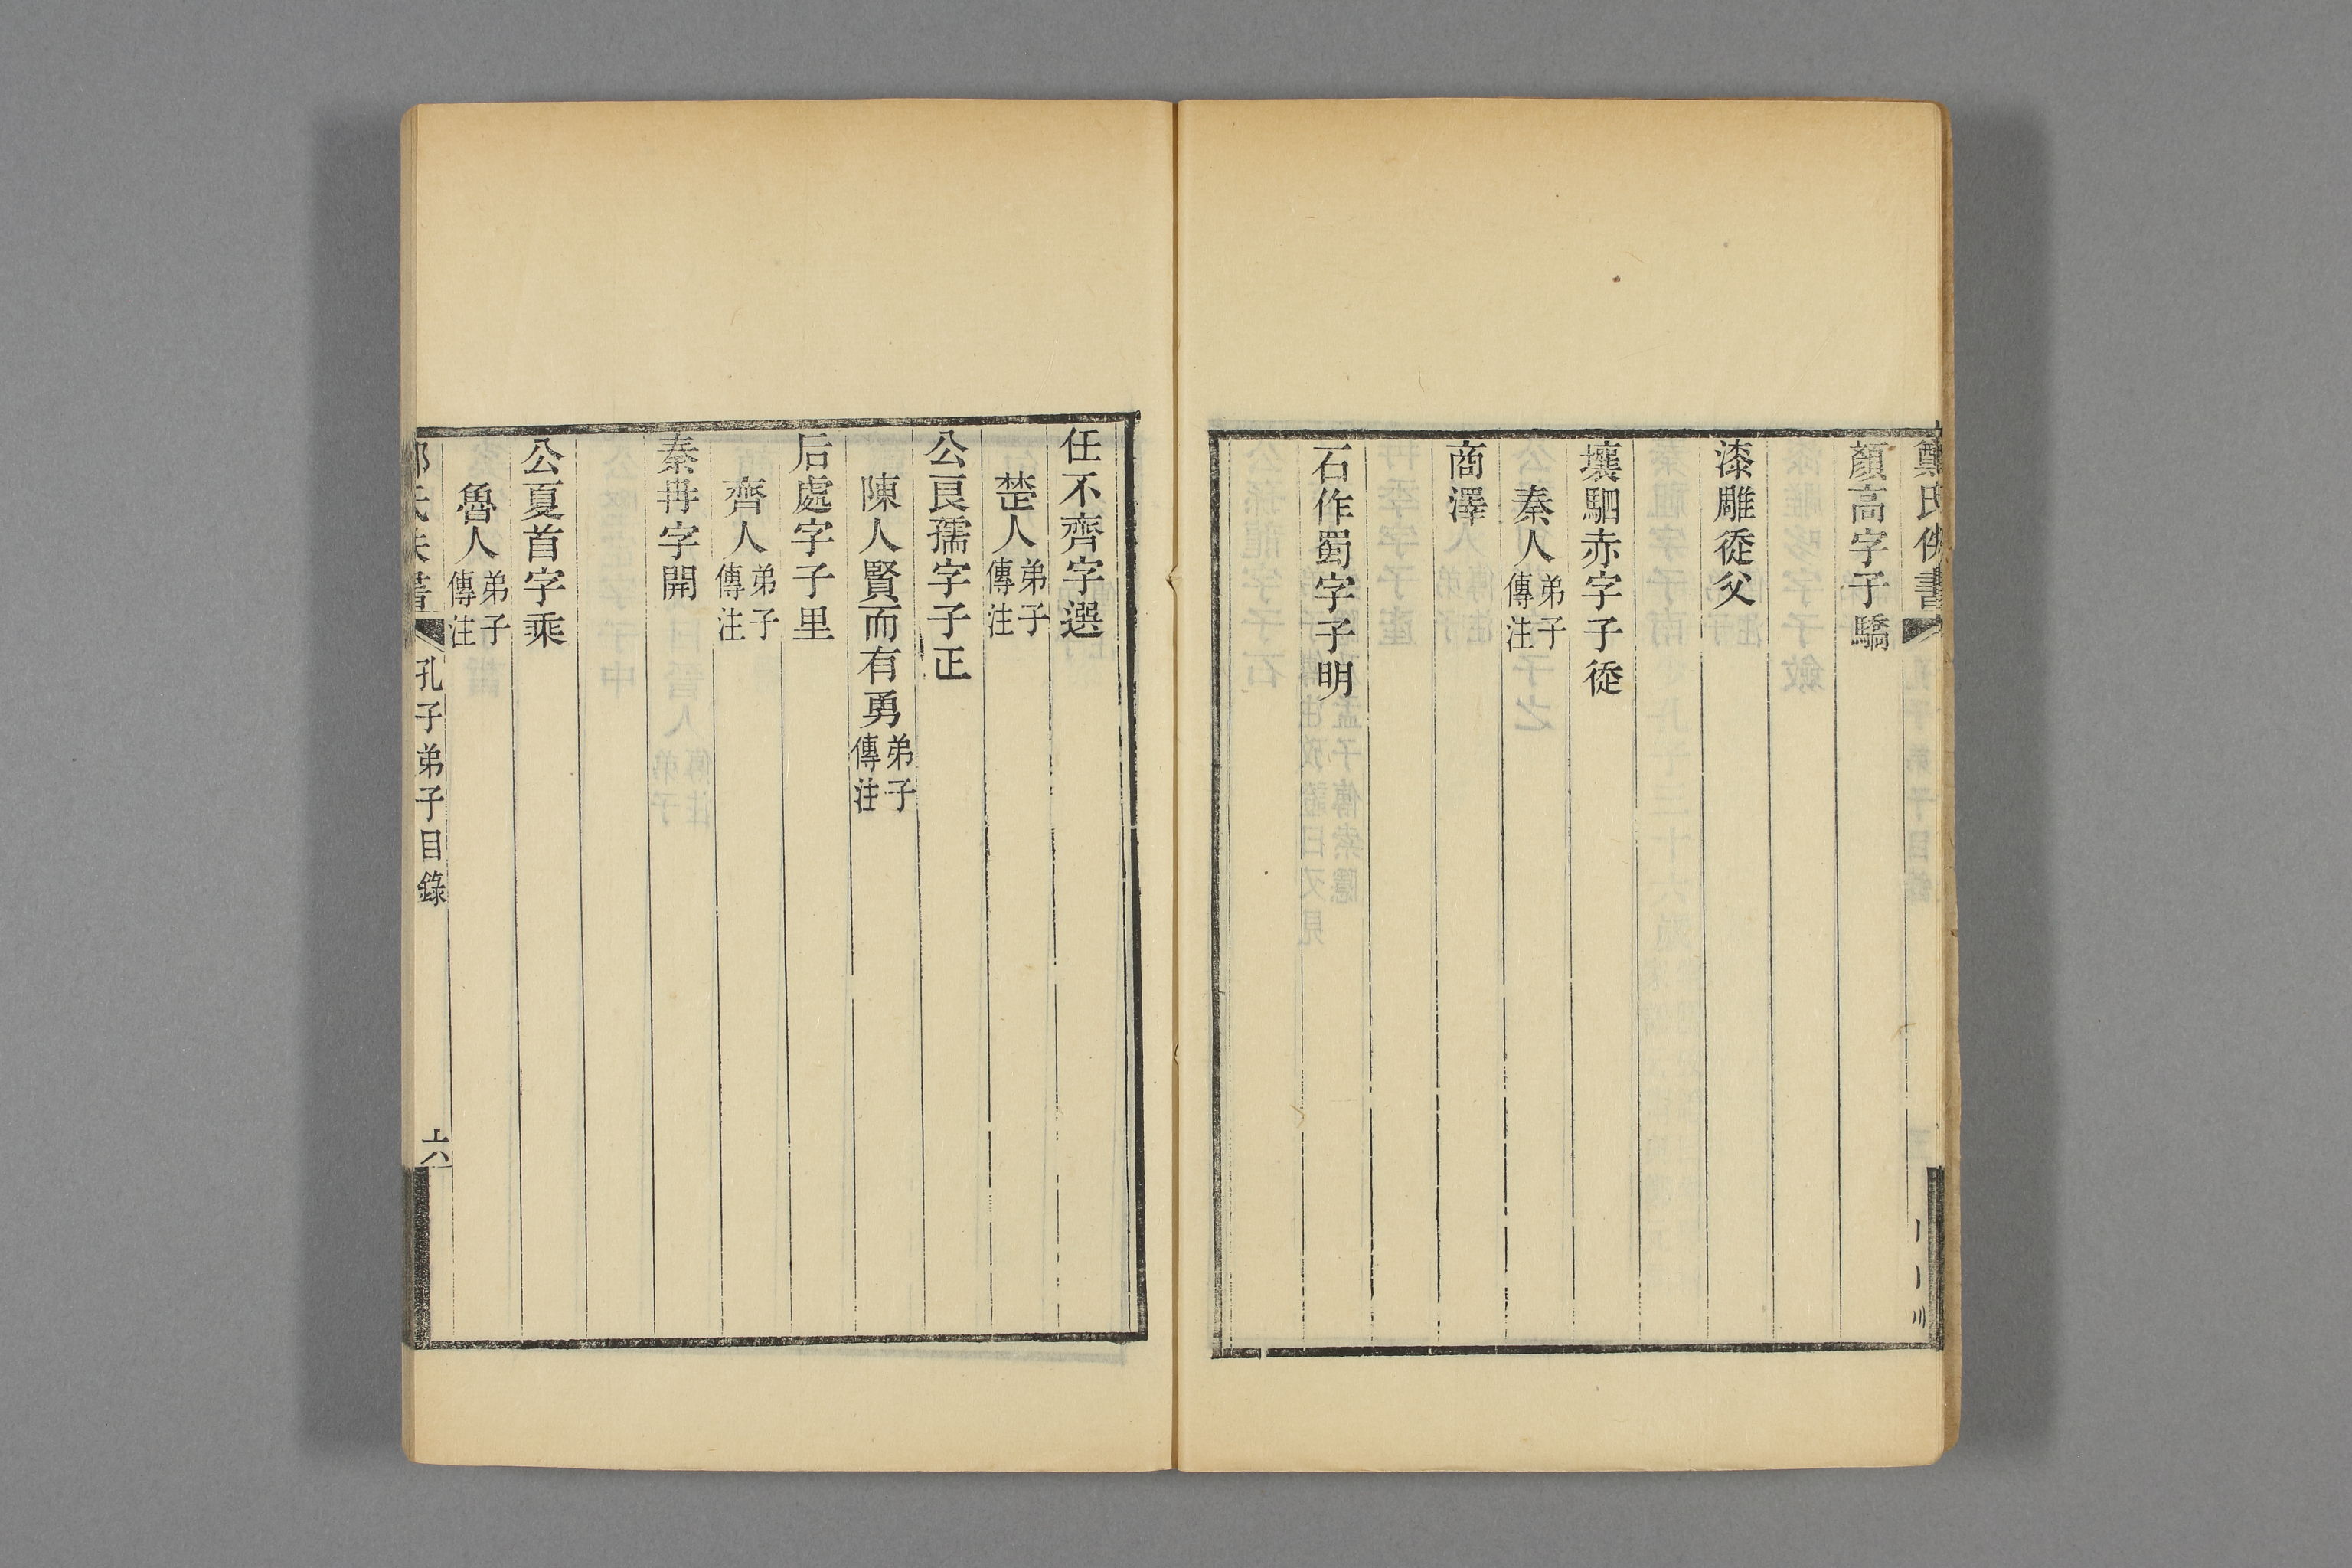 鄭氏佚書
顏高字子驕
漆雕從父
壤駟赤字子從
秦人弟子傳注
商澤
石作蜀字子明
任不齊字選
楚人弟子傳注
公良孺字子正
陳人賢而有勇弟子傳注
后處字子里
齊人弟子傳注
秦冉字開
公夏首字乘
魯人弟子傳注
孔子弟子目錄
六